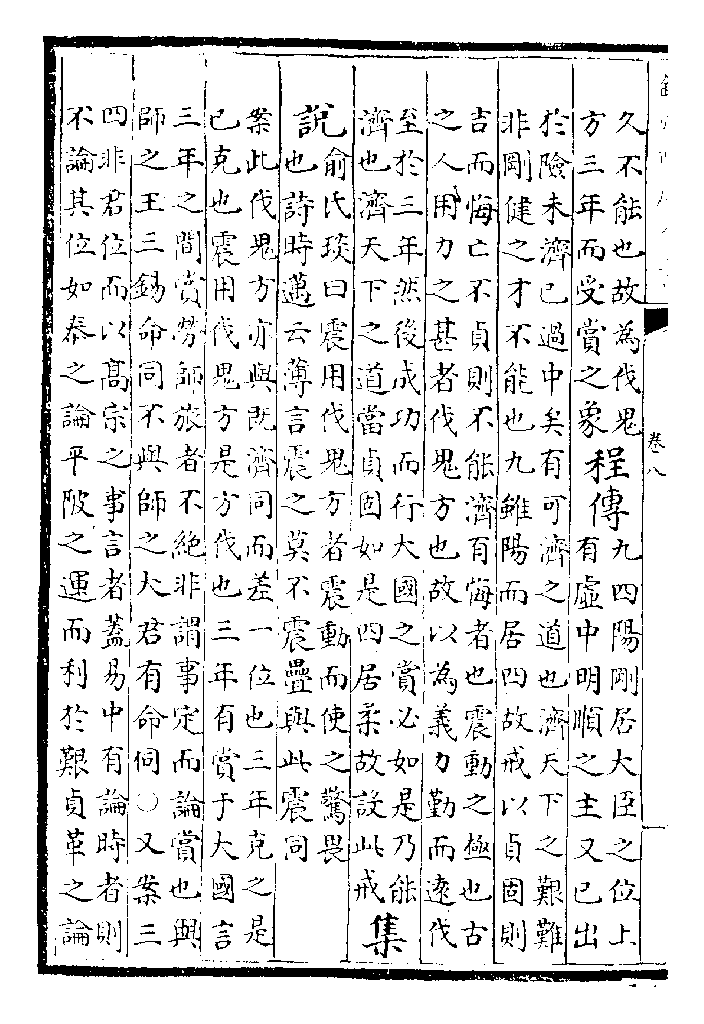 久不能也故為伐鬼
方三年而受賞之象
程傳
九四陽剛居大臣之位上
有虛中明順之主又已出
於險未濟已過中矣有可濟之道也濟天下之艱難
非剛健之才不能也九雖陽而居四故戒以貞固則
吉而悔亡不貞則不能濟有悔者也震動之極也古
之人用力之甚者伐鬼方也故以為義力勤而遠伐
至於三年然後成功而行大國之賞必如是乃能
濟也濟天下之道當貞固如是四居柔故設此戒
集
說
俞氏琰曰震用伐鬼方者震動而使之驚畏
也詩時邁云薄言震之莫不震疊與此震同
案此伐鬼方亦與既濟同而差一位也三年克之是
已克也震用伐鬼方是方伐也三年有賞于大國言
三年之間賞勞師旅者不絕非謂事定而論賞也與
師之王三錫命同不與師之大君有命同○又案三
四非君位而以高宗之事言者蓋易中有論時者則
不論其位如泰之論平陂之運而利於艱貞革之論
卷八